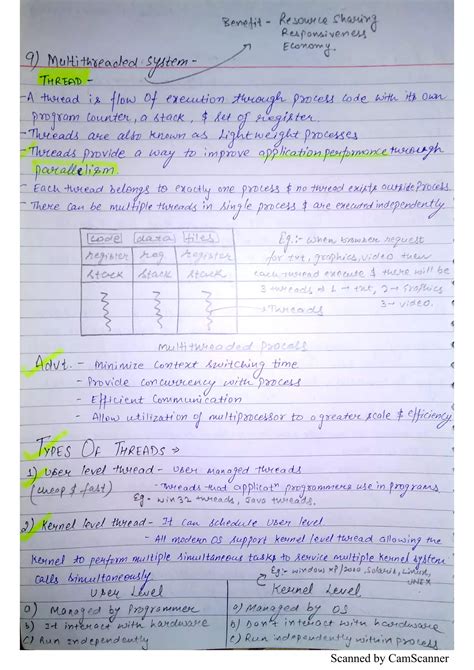 Benefit - Resource Sharing
Responsiveness
Economy.
9) Multithreaded System -
THREAD -
- A thread is flow of execution through process code with its own
program counter, a stack, & set of register.
- Threads are also known as Lightweight processes
- Threads provide a way to improve application performance through
parallelism
- Each thread belongs to exactly one process & no thread exists outside Process
- There can be multiple threads in single process & are executed independently
code data files
register reg register
stack stack stack
Eg:- When browser request
for txt, graphics, video then
each thread execute & there will be
3 threads 1 → txt, 2 → Graphics
3 → video.
→ Threads
Multithreaded process
Advt. - Minimize context switching time
- Provide concurrency with process
- Efficient Communication
- Allow utilization of multiprocessor to a greater scale & efficiency
TYPES OF THREADS →
1) User level thread - User managed threads
(cheap & fast) - Threads that applicatn programmers use in programs
Eg - Win 32 threads, Java threads.
2) Kernel level thread - It can schedule user level
- All modern OS support kernel level thread allowing the
Kernel to perform multiple simultaneous tasks to service multiple kernel system
calls simultaneously
Eg:- windows XP/2000, Solaris, Linux,
UNIX
User Level Kernel Level
a) Managed by Programmer a) Managed by OS
b) It interact with hardware b) Don't interact with hardware
c) Run independently c) Run independently within process
Scanned by CamScanner